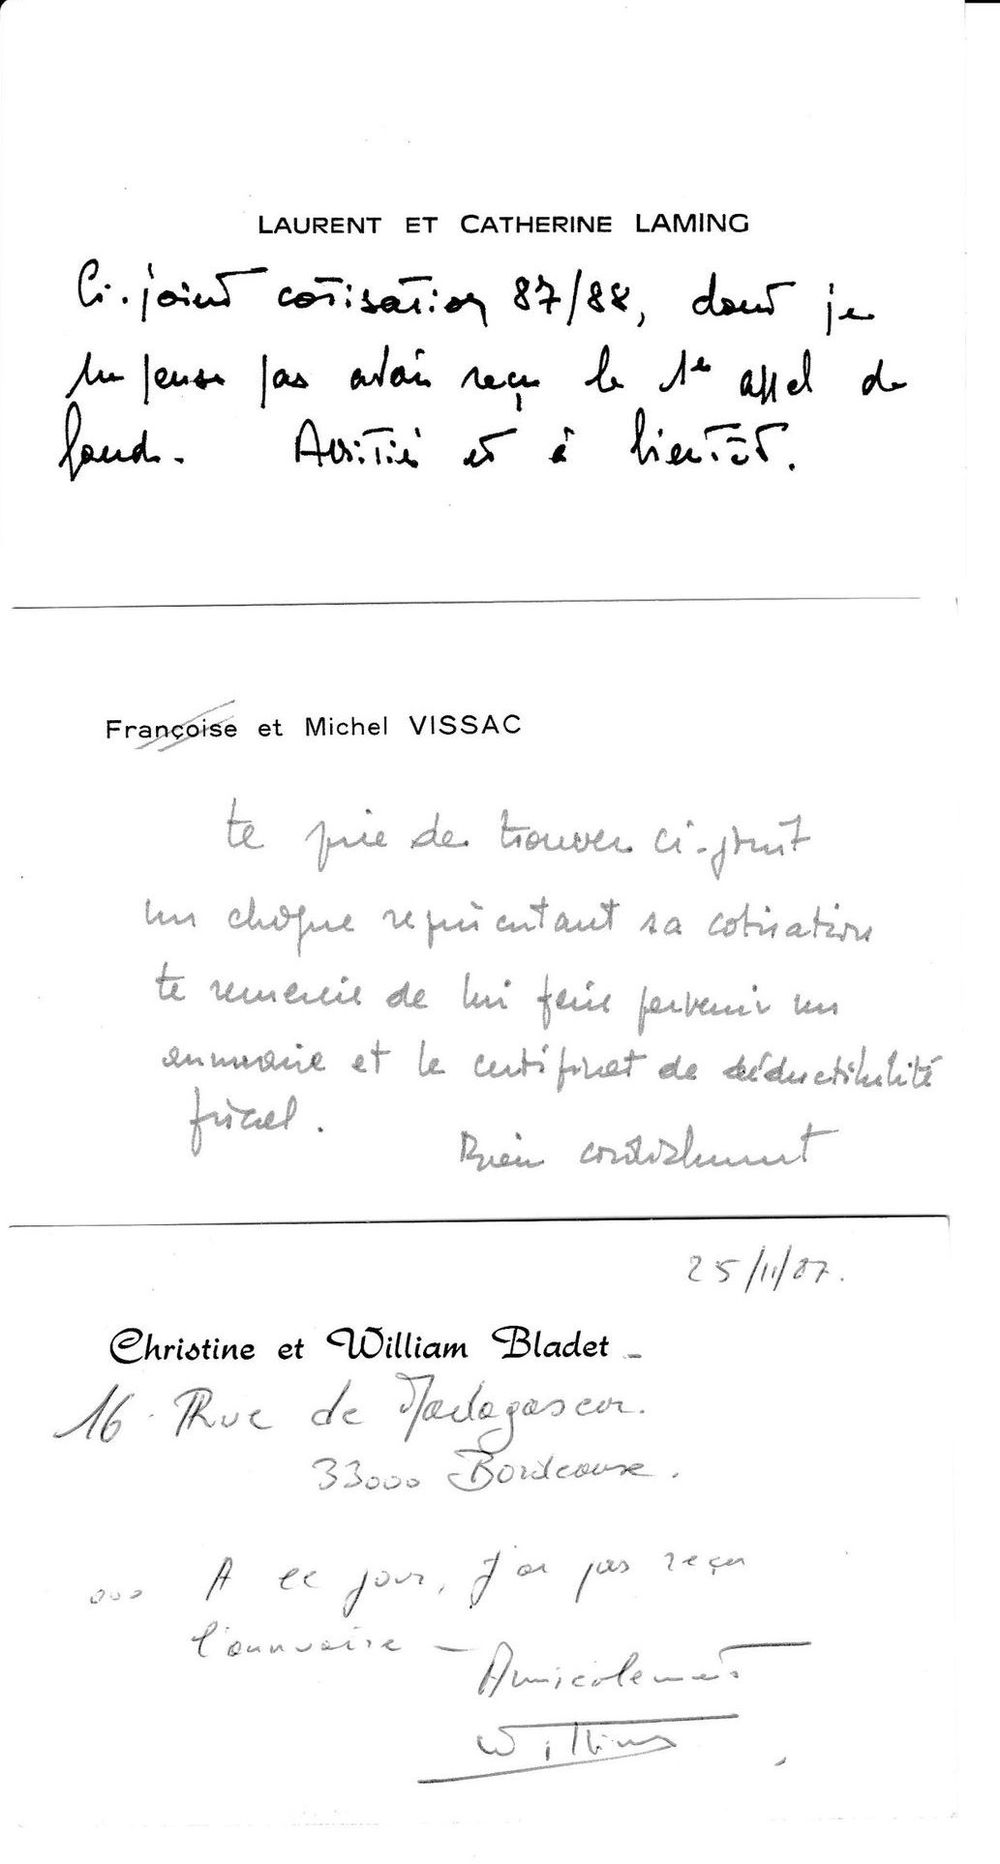 LAURENT ET CATHERINE LAMING
Ci-joint cotisation 87/88, dont je
ne pense pas avoir reçu le 1er appel de
fonds. Amitié et à bientôt.
Françoise et Michel VISSAC
te prie de trouver ci-joint
un chèque représentant sa cotisation
te remercie de lui faire parvenir un
annuaire et le certificat de déductibilité
fiscal.
Bien cordialement
25/11/87.
Christine et William Bladet -
16 Rue de Madagascar.
33000 Bordeaux.
... A ce jour, j'ai pas reçu
l'annuaire -
Amicalement
William